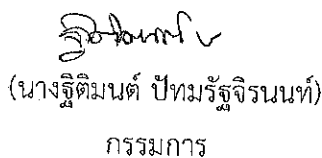 (นางฐิติมนต์ ปัทมรัฐจิรนนท์)
กรรมการ